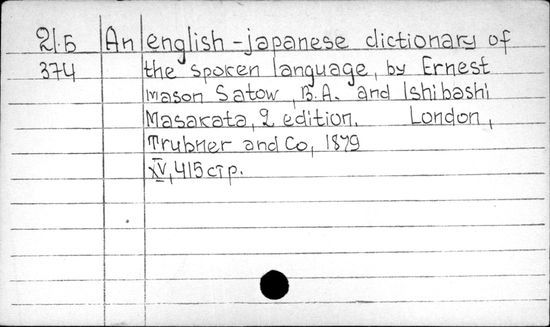 21.5 An english-japanese dictionary of
374 the spoken language, by Ernest
Mason Satow, B.A. and Ishibashi
Masakata, 2 edition. London,
Trubner and Co, 1879
XV, 415 стр.